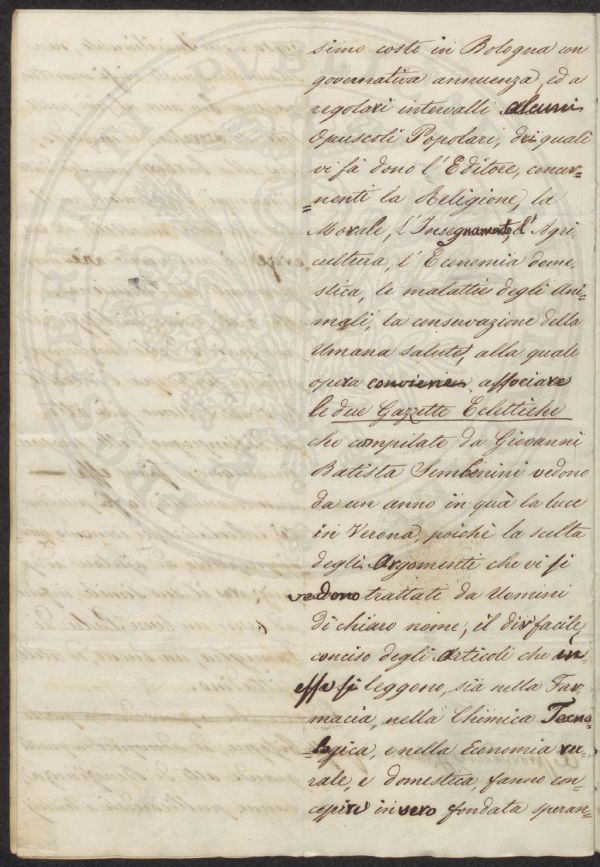 simo costo in Bologna con
governativa annuenza, ed a
regolari intervalli alcuni
Opuscoli Popolari, dei quali
vi fà dono l'Editore, concer=
=nenti la Religione, la
Morale, l'Insegnamento, l'Agri
cultura, l'Economia dome,
stica, le malattie degli Ani-
mali, la conservazione della
Umana Salute, alla quale
opera conviene associare
le due Gazzette Eclettiche
che compilate da Giovanni
Batista Sembenini vedono
da un anno in quà la luce
in Verona, poichè la scelta
degli Argomenti che vi si
vedono trattati da Uomini
di chiaro nome, il dir facile,
conciso degli Articoli che in
esse si leggono, sia nella Far-
macia, nella Chimica Tecno
logica, e nella Economia ru-
rale, e domestica, fanno con-
cepire in vero fondata speran-